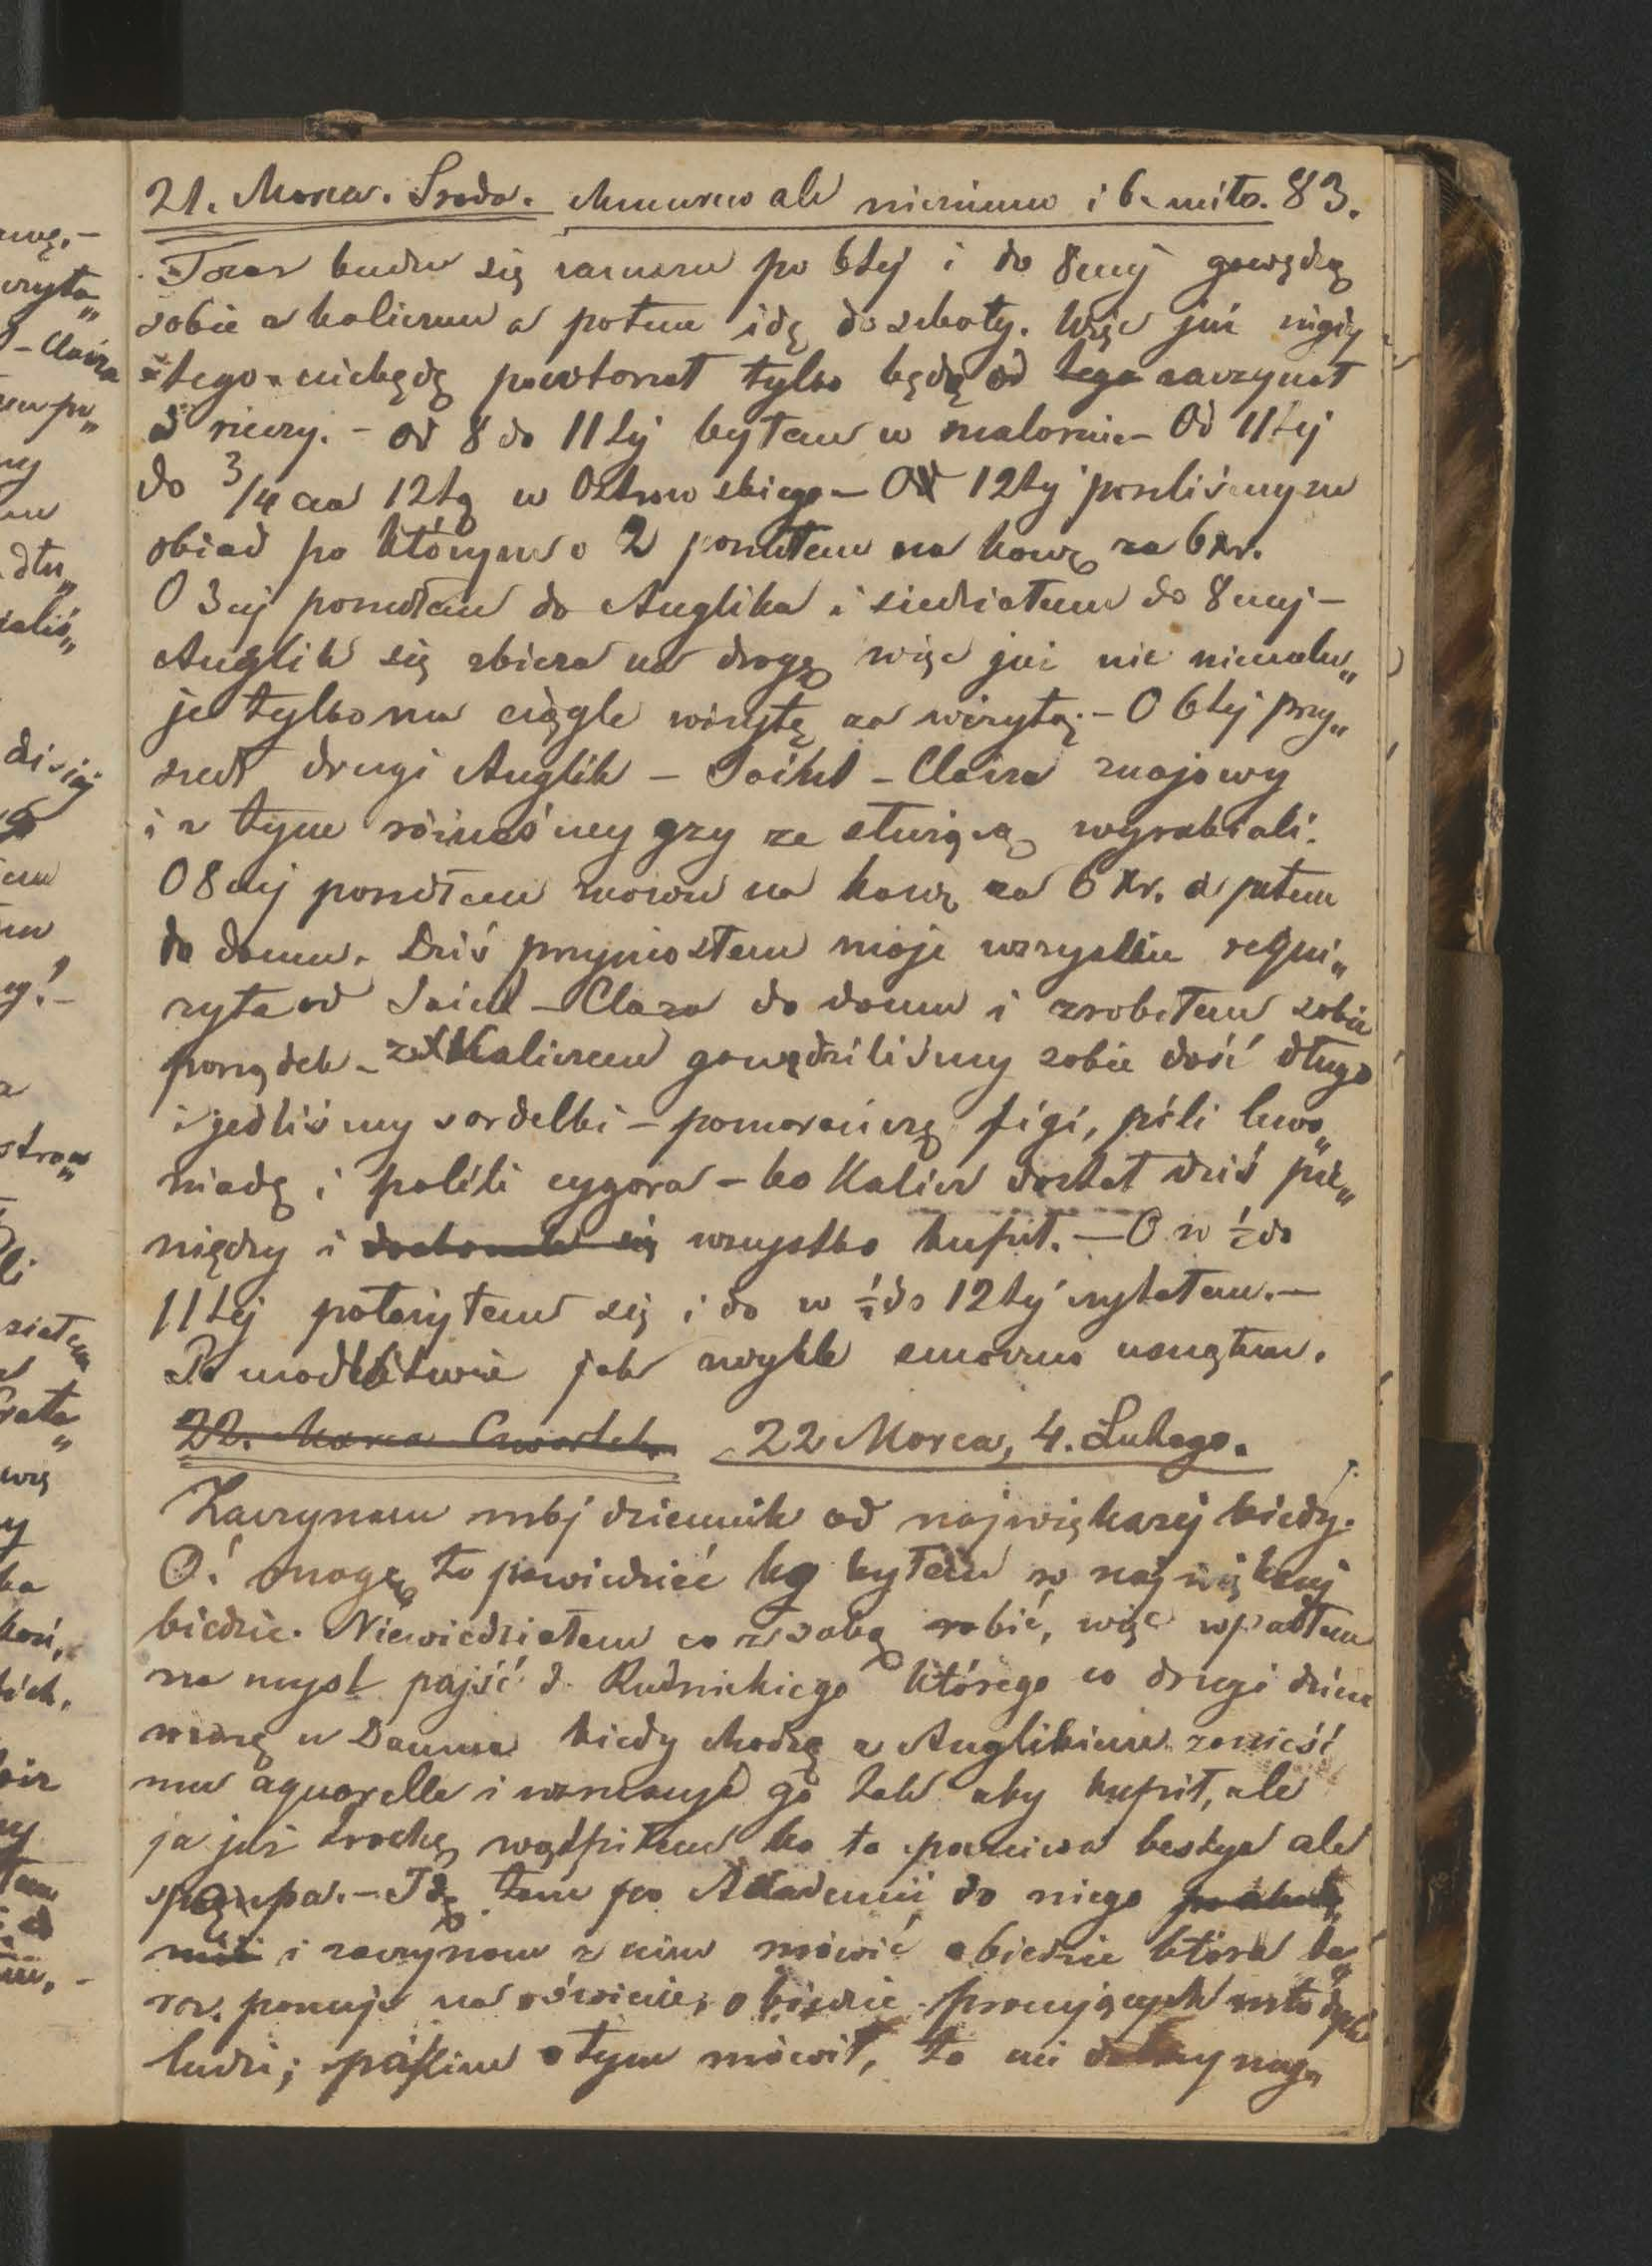 21. Marca. Środa. Chmurno ale niezimno i b. miło. 83.
Teraz budzę się zawsze po 6tej i do 8mej gawędzę
sobie z Kaliczem a potem idę do szkoły. Więc już nigdy
tego niebędę powtorzał tylko będę od tego zaczynał
rzeczy. – Od 8 do 11tej byłem w malarni – Od 11tej
do 3/4 na 12tą u Ostrowskiego – Od 12tej poszliśmy na
obiad po którym o 2 poszłem na kawę za 6 Xr.
O 3ej poszedłem do Anglika i siedziałem do 8mej –
Anglik się zbiera na drogę więc już nic niemalu„
je tylko ma ciągle wizytę za wizytą. – O 6tej przy„
szedł drugi Anglik – Saint-Claira znajomy
i z tym różneśmy gzy ze służącą wyrabiali.
O 8mej poszedłem znowu na kawę za 6 Xr. a potem
do domu. Dziś przyniosłem moje wszystkie rekwi„
zyta od Saint-Clara do domu i zrobiłem sobie
porządek – Z Kaliczem gawędziliśmy sobie dość długo
i jedliśmy sardelki – pomarańczę figi, pili lemo„
niadę i palili cygara – bo Kalicz dostał dziś pie„
niędzy i wszystko kupił. – O w ½ do
11tej położyłem się i do w ½ do 12tej czytałem. –
Po modlitwie jak zwykle smaczno usnąłem.
22. Marca Czwartek. 22 Marca, 4. Lutego.
Zaczynam mój dziennik od największej biedy.
O! mogę to powiedzieć bo byłem w największej
biedzie. Niewiedziałem co z sobą robić, więc wpadłem
na myśl pójść d. Rudnickiego którego co drugi dzień
widzę u Dauma kiedy chodzę z Anglikiem zanieść
mu aquarelle i tak aby kupił, ale
ja już trochę wątpiłem bo to poczciwa bestya ale
skąpa. – Idę tam po Akademii do niego
i zaczynam z nim mówić o biedzie która te„
raz panuje na świecie, o biedzie pracujących młodych
ludzi; o tym mówił, to mi